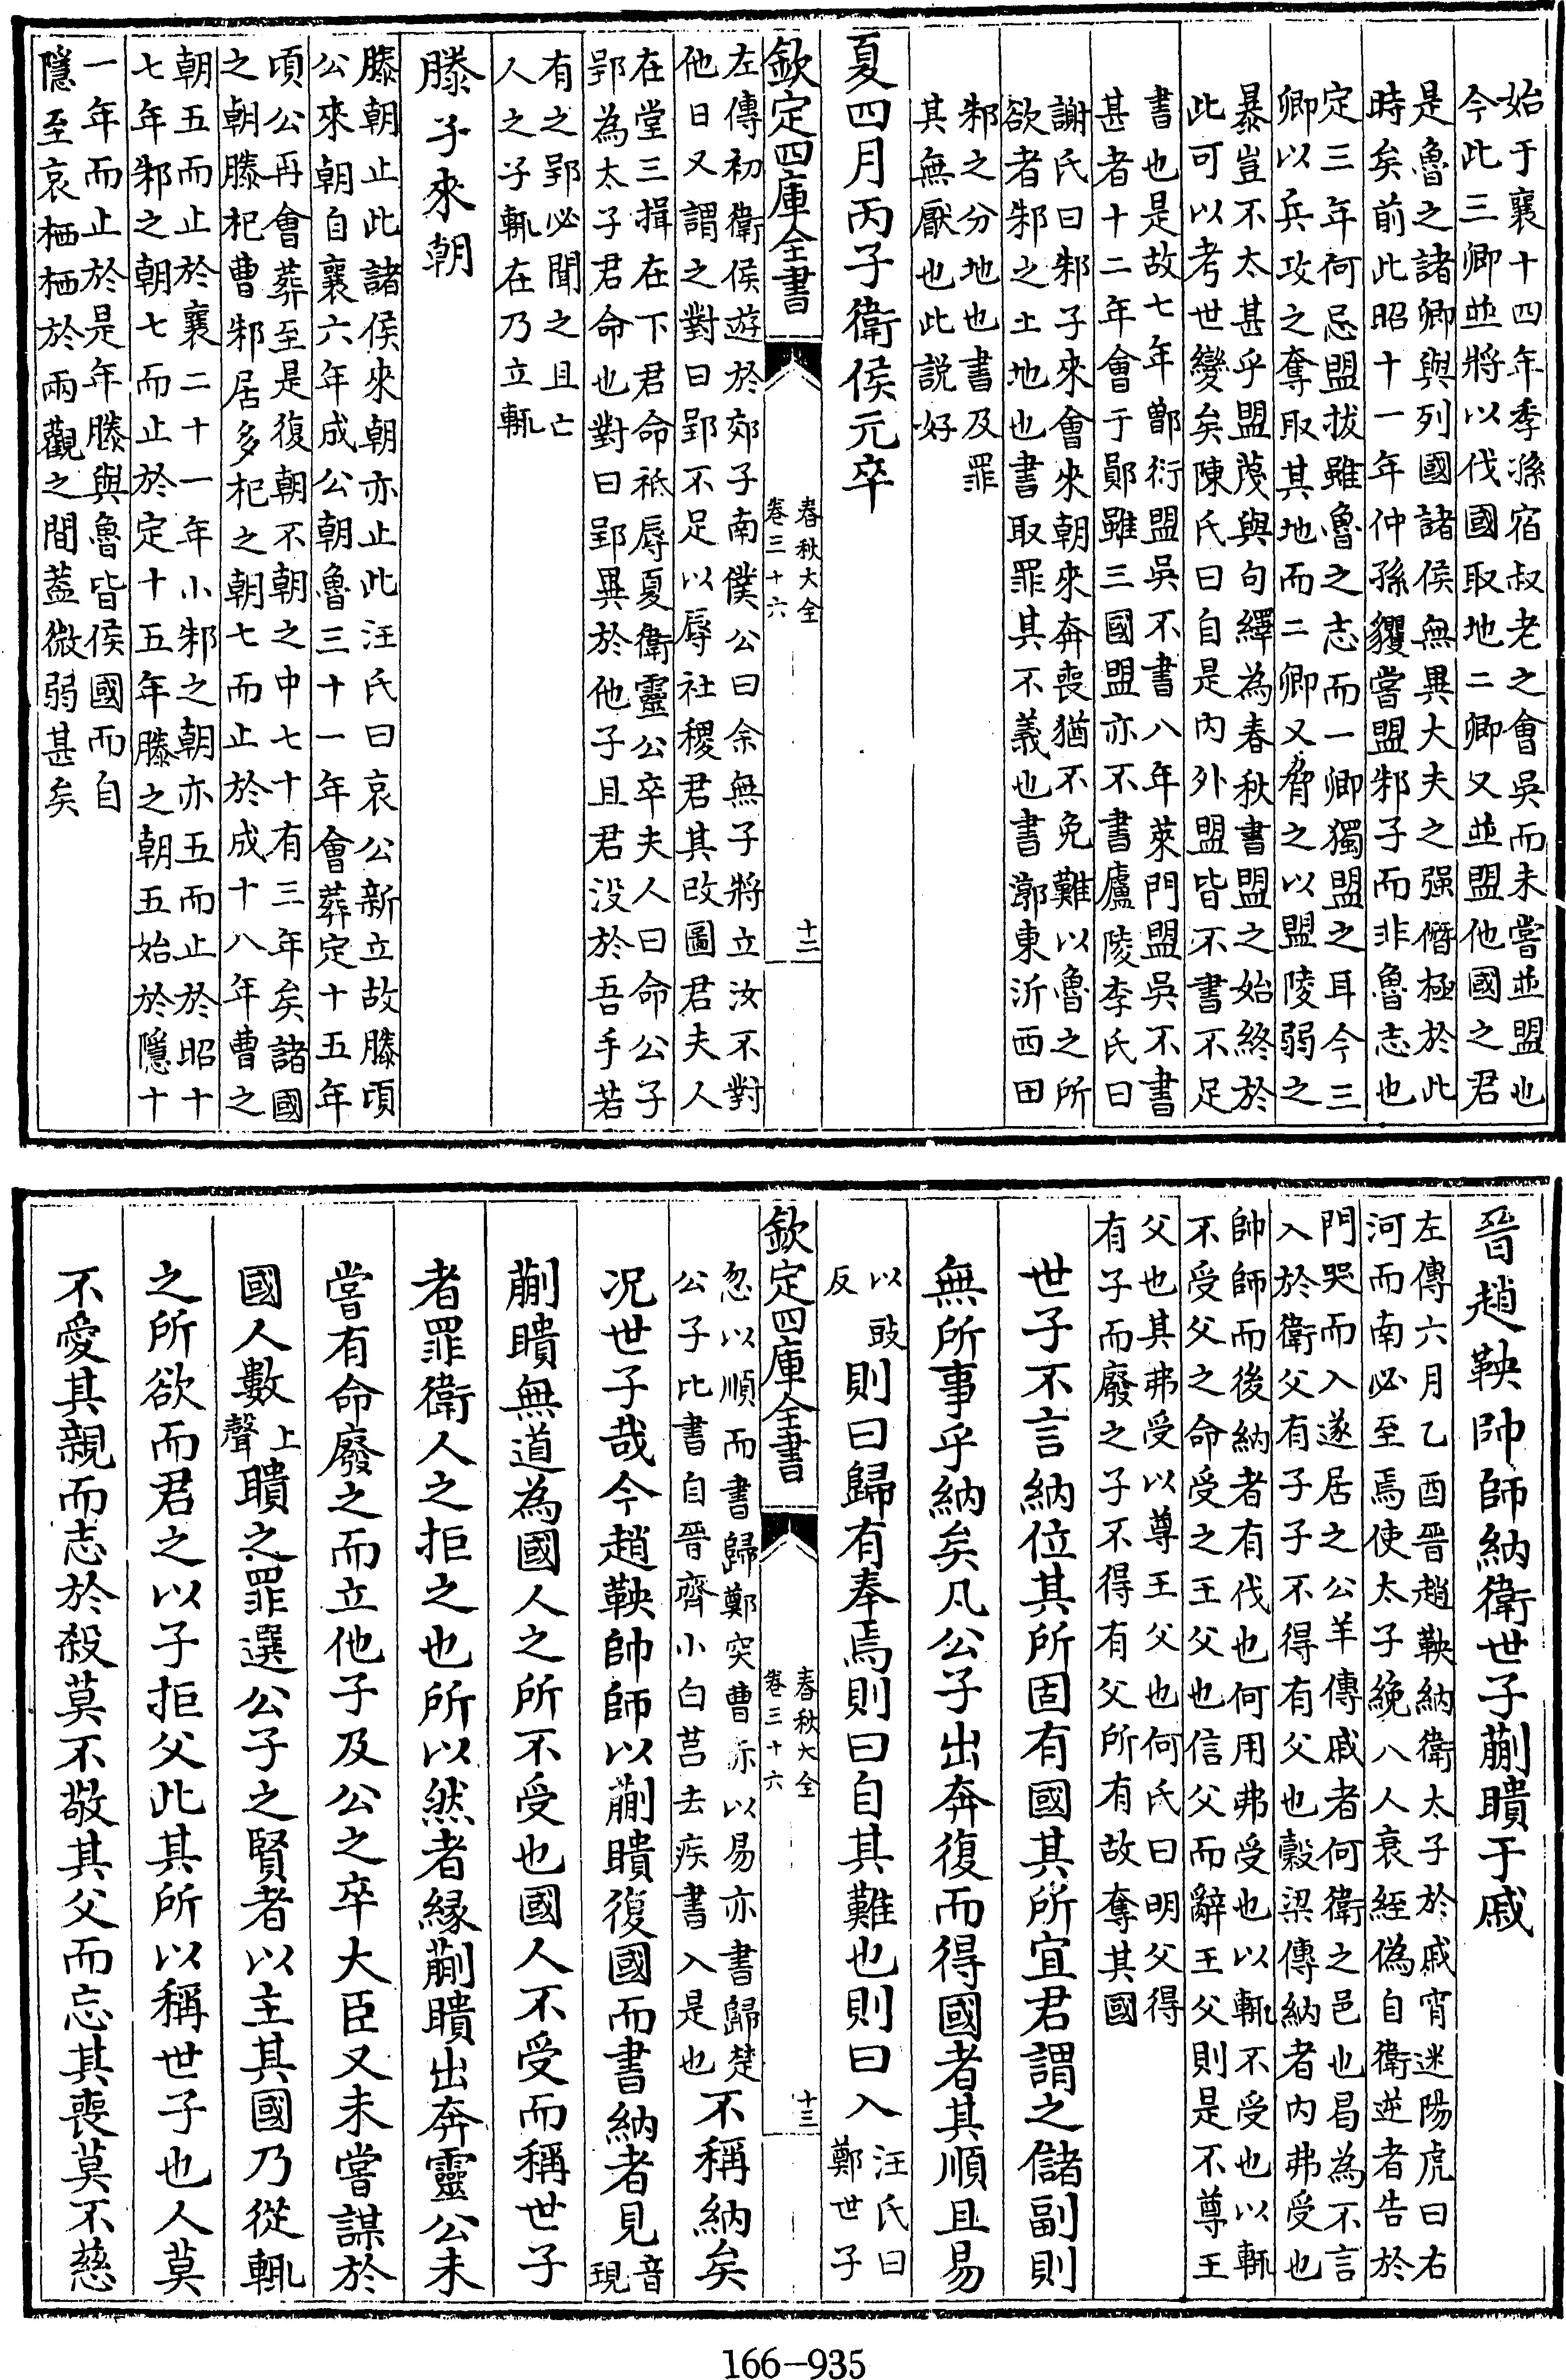 始于襄十四年季孫宿叔老之會吳而未嘗並盟也
今此三卿並將以伐國取地二卿又並盟他國之君
是魯之諸卿與列國諸侯無異大夫之强僭極於此
時矣前此昭十一年仲孫貜嘗盟邾子而非魯志也
定三年何忌盟拔雖魯之志而一卿獨盟之耳今三
卿以兵攻之奪取其地而二卿又脅之以盟陵弱之
暴豈不太甚乎盟蔑與句繹為春秋書盟之始終於
此可以考世變矣陳氏曰自是内外盟皆不書不足
書也是故七年鄫衍盟吳不書八年萊門盟吳不書
甚者十二年會于鄖雖三國盟亦不書廬陵李氏曰
謝氏曰邾子來會來朝來奔喪猶不免難以魯之所
欲者邾之土地也書取罪其不義也書漷東沂西田
邾之分地也書及罪
其無厭也此説好
夏四月丙子衛侯元卒
欽定四庫全書
春秋大全
卷三十六
十二
左傳初衛侯遊於郊子南僕公曰余無子將立汝不對
他日又謂之對曰郢不足以辱社稷君其改圖君夫人
在堂三揖在下君命祗辱夏衛靈公卒夫人曰命公子
郢為太子君命也對曰郢異於他子且君没於吾手若
有之郢必聞之且亡
人之子輒在乃立輒
滕子來朝
滕朝止此諸侯來朝亦止此汪氏曰哀公新立故滕頃
公來朝自襄六年成公朝魯三十一年會葬定十五年
頃公再會葬至是復朝不朝之中七十有三年矣諸國
之朝滕杞曹邾居多杞之朝七而止於成十八年曹之
朝五而止於襄二十一年小邾之朝亦五而止於昭十
七年邾之朝七而止於定十五年滕之朝五始於隱十
一年而止於是年滕與魯皆侯國而自
隱至哀栖栖於兩觀之間蓋微弱甚矣
晉趙鞅帥師納衛世子蒯聵于戚
左傳六月乙酉晉趙鞅納衛太子於戚宵迷陽虎曰右
河而南必至焉使太子絻八人衰絰偽自衛逆者告於
門哭而入遂居之公羊傳戚者何衛之邑也曷為不言
入於衛父有子子不得有父也榖梁傳納者内弗受也
帥師而後納者有伐也何用弗受也以輒不受也以輒
不受父之命受之王父也信父而辭王父則是不尊王
父也其弗受以尊王父也何氏曰明父得
有子而廢之子不得有父所有故奪其國
世子不言納位其所固有國其所宜君謂之儲副則
無所事乎納矣凡公子出奔復而得國者其順且易
以豉
反
則曰歸有奉焉則曰自其難也則曰入
汪氏曰
鄭世子
欽定四庫全書
春秋大全
卷三十六
十三
忽以順而書歸鄭突曹赤以易亦書歸楚
公子比書自晉齊小白莒去疾書入是也
不稱納矣
况世子哉今趙鞅帥師以蒯聵復國而書納者見
音
現
蒯聵無道為國人之所不受也國人不受而稱世子
者罪衛人之拒之也所以然者緣蒯聵出奔靈公未
嘗有命廢之而立他子及公之卒大臣又未嘗謀於
國人數
上
聲
聵之罪選公子之賢者以主其國乃從輒
之所欲而君之以子拒父此其所以稱世子也人莫
不愛其親而志於殺莫不敬其父而忘其喪莫不慈
166-935